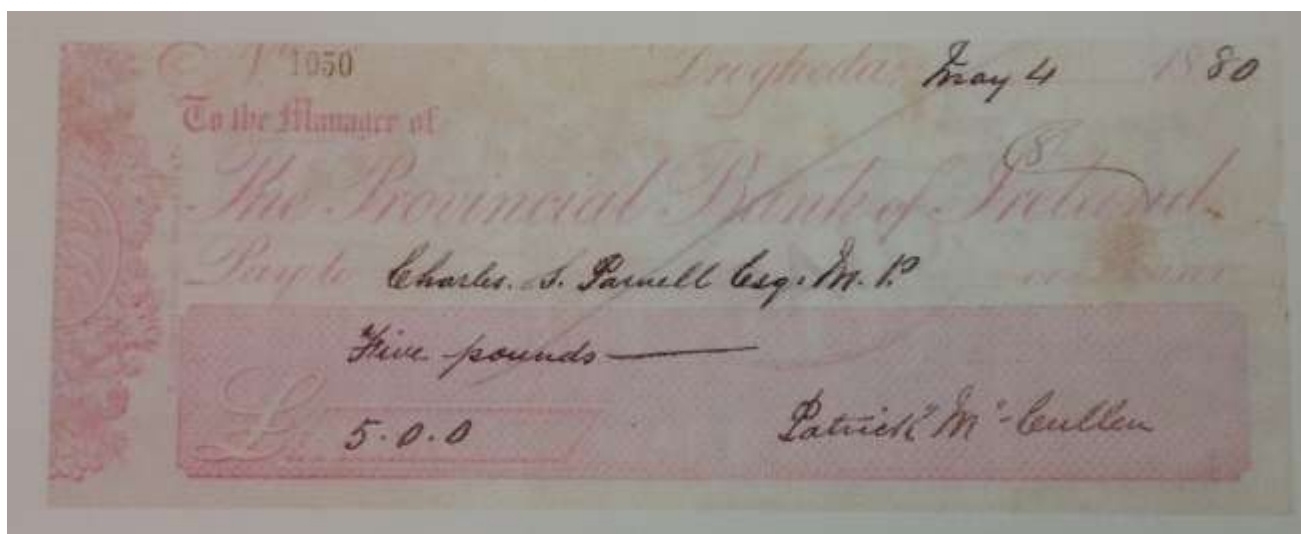 No 1050 Drogheda, May 4 1880
To the Manager of
The Provincial Bank of Ireland
Pay to Charles. S. Parnell Esq. M. P.
Five pounds
£ 5.0.0 Patrick Mc Cullen